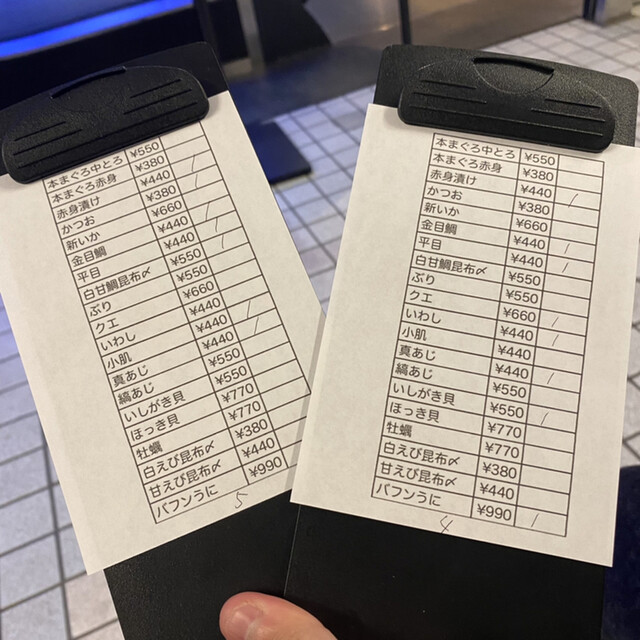 本まぐろ中とろ ¥550
本まぐろ赤身 ¥380
赤身漬け ¥440 /
かつお ¥380
新いか ¥660 /
金目鯛 ¥440
平目 ¥440 /
白甘鯛昆布〆 ¥550
ぶり ¥550
クエ ¥660
いわし ¥440 /
小肌 ¥440 /
真あじ ¥440
縞あじ ¥550
いしがき貝 ¥550
ほっき貝 ¥770
牡蠣 ¥770
白えび昆布〆 ¥380
甘えび昆布〆 ¥440
バフンうに ¥990
5
本まぐろ中とろ ¥550
本まぐろ赤身 ¥380
赤身漬け ¥440 /
かつお ¥380
新いか ¥660
金目鯛 ¥440 /
平目 ¥440
白甘鯛昆布〆 ¥550
ぶり ¥550
クエ ¥660 /
いわし ¥440 /
小肌 ¥440
真あじ ¥440 /
縞あじ ¥550
いしがき貝 ¥550 /
ほっき貝 ¥770
牡蠣 ¥770
白えび昆布〆 ¥380
甘えび昆布〆 ¥440
バフンうに ¥990 /
4